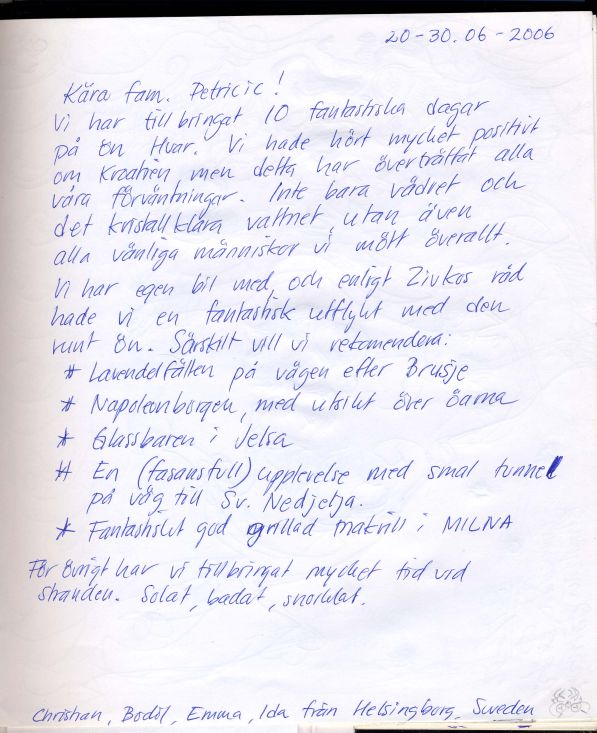 20-30.06-2006
Kära fam. Petricic!
Vi har tillbringat 10 fantastiska dagar
på ön Hvar. Vi hade hört mycket positivt
om Kroatien, men detta har överträffat alla
våra förväntningar. Inte bara vädret och
det kristallklara vattnet, utan även
alla vänliga människor vi mött överallt.
Vi har egen bil med, och enligt Zivkos råd
hade vi en fantastisk utflykt med den
runt ön. Särskilt vill vi rekomendera:
* Lavendelfälten på vägen efter Brusje
* Napoleonborgen, med utsikt över öarna
* Glassbaren i Jelsa
* En (fasansfull) upplevelse med smal tunnel
på väg till Sv. Nedjelja.
* Fantastiskt god grillad makrill i MILNA
För övrigt har vi tillbringat mycket tid vid
stranden. Solat, badat, snorklat.
Christian, Bodil, Emma, Ida från Helsingborg, Sweden